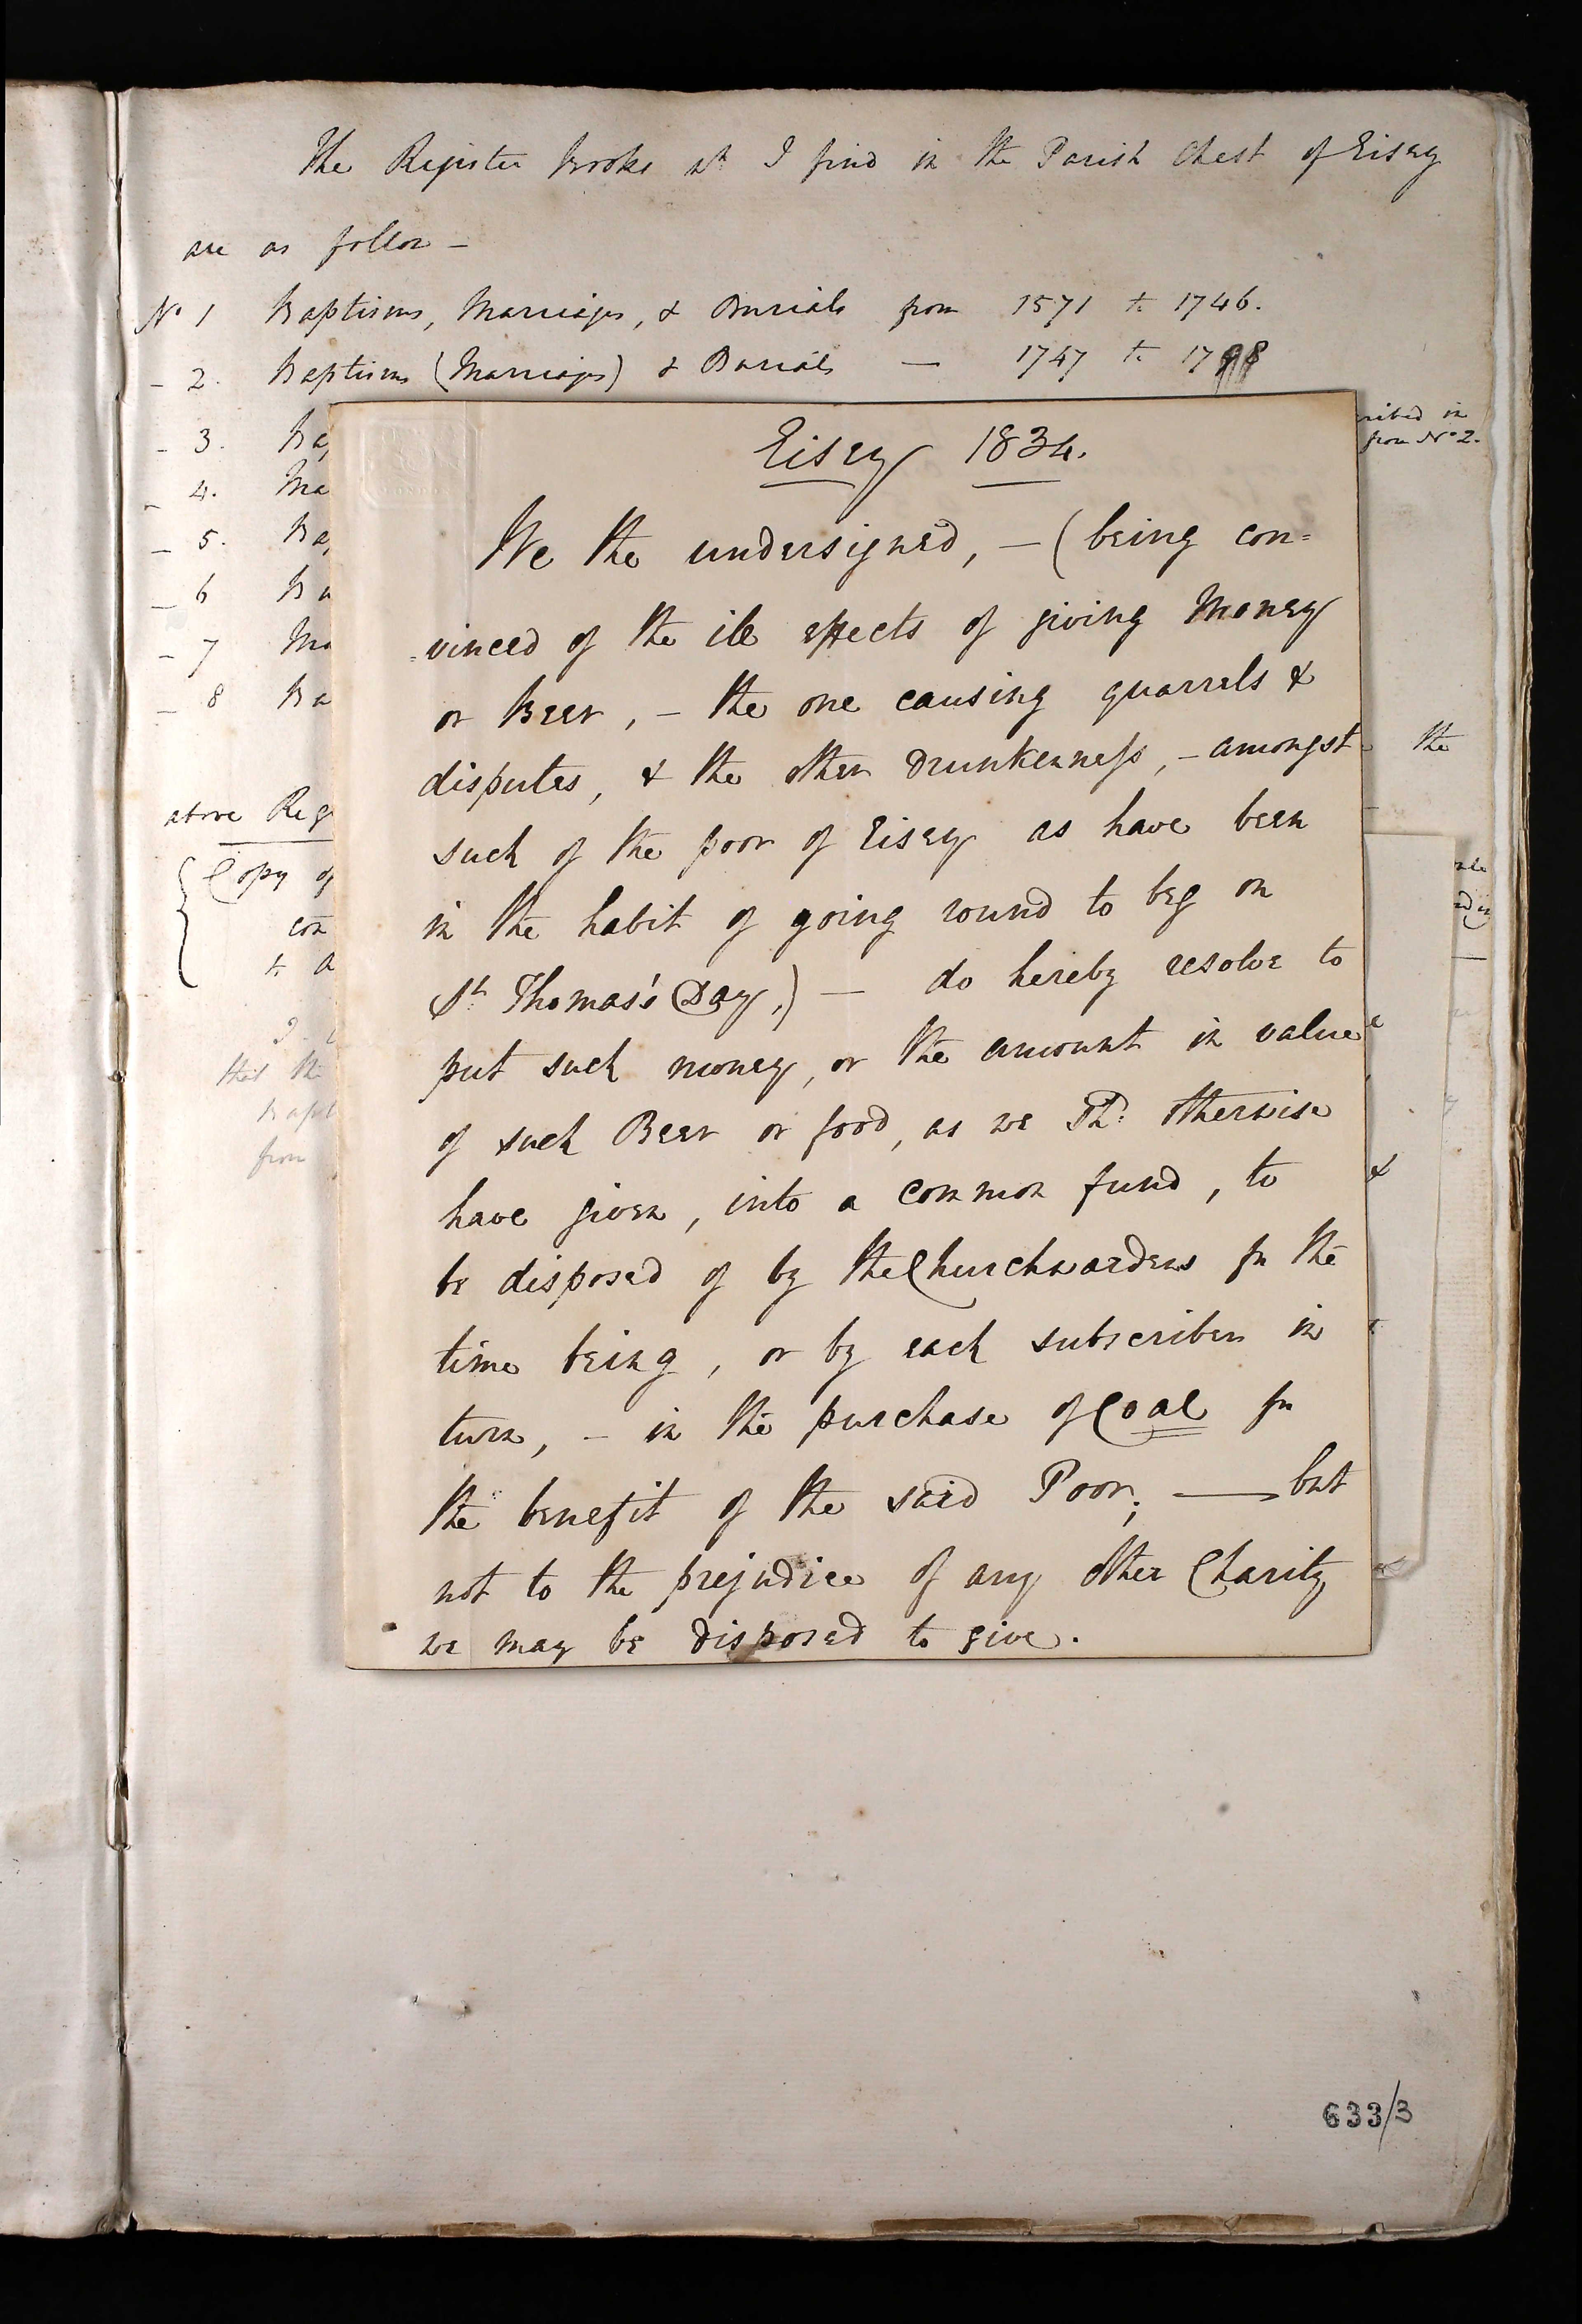 The Register Books wh I find in the Parish Chest of Eisey
are as follow –
No 1 Baptisms, Marriages, & Burials from 1571 to 1746.
– 2. Baptisms (Marriages) & Burials — 1747 to 1798
– 3. Ba
– 4. Ma
– 5. Ba
– 6 Bu
– 7 Ma
– 8 Ba
cribed in
from No 2.
the
above Reg
Copy of
con
to
that the
Bapt
from
&
Eisey 1834.
We the undersigned, – (being con=
=vinced of the ill effects of giving Money
or Beer, – the one causing quarrels &
disputes, & the other drunkenness, – amongst
such of the poor of Eisey as have been
in the habit of going round to beg on
St Thomas's Day,) — do hereby resolve to
put such money, or the amount in value
of such Beer or food, as we Shd: otherwise
have given, into a common fund, to
be disposed of by the Churchwardens for the
time being, or by each subscriber in
turn, – in the purchase of Coal for
the benefit of the said Poor; — but
not to the prejudice of any other Charity
we may be disposed to give.
633/3